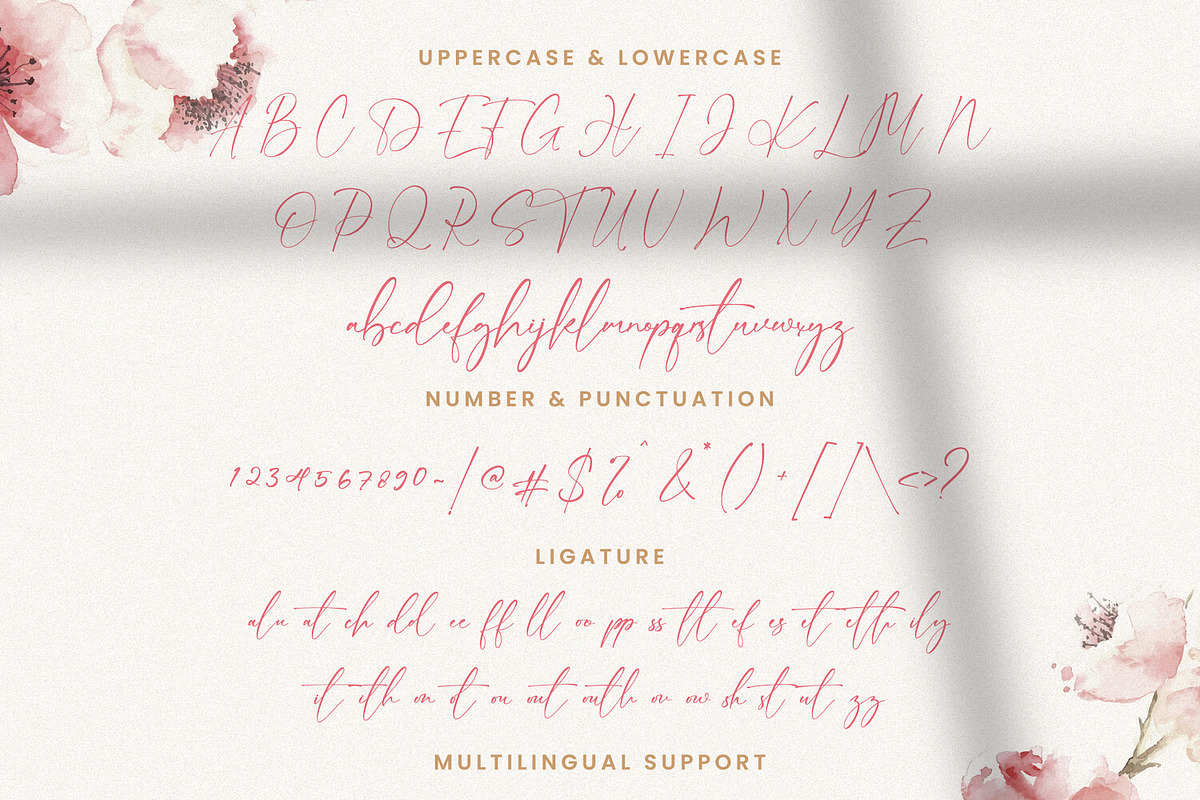 UPPERCASE & LOWERCASE
A B C D E F G H I J K L M N
O P Q R S T U V W X Y Z
abcdefghijklmnopqrstuvwxyz
NUMBER & PUNCTUATION
1234567890~!@#$%^&*()+[]\<>?
LIGATURE
at ch dd ee ff ll oo pp ss tt ef es et eth ily
it ith on ot ou out outh ov ow sh st ut zz
MULTILINGUAL SUPPORT